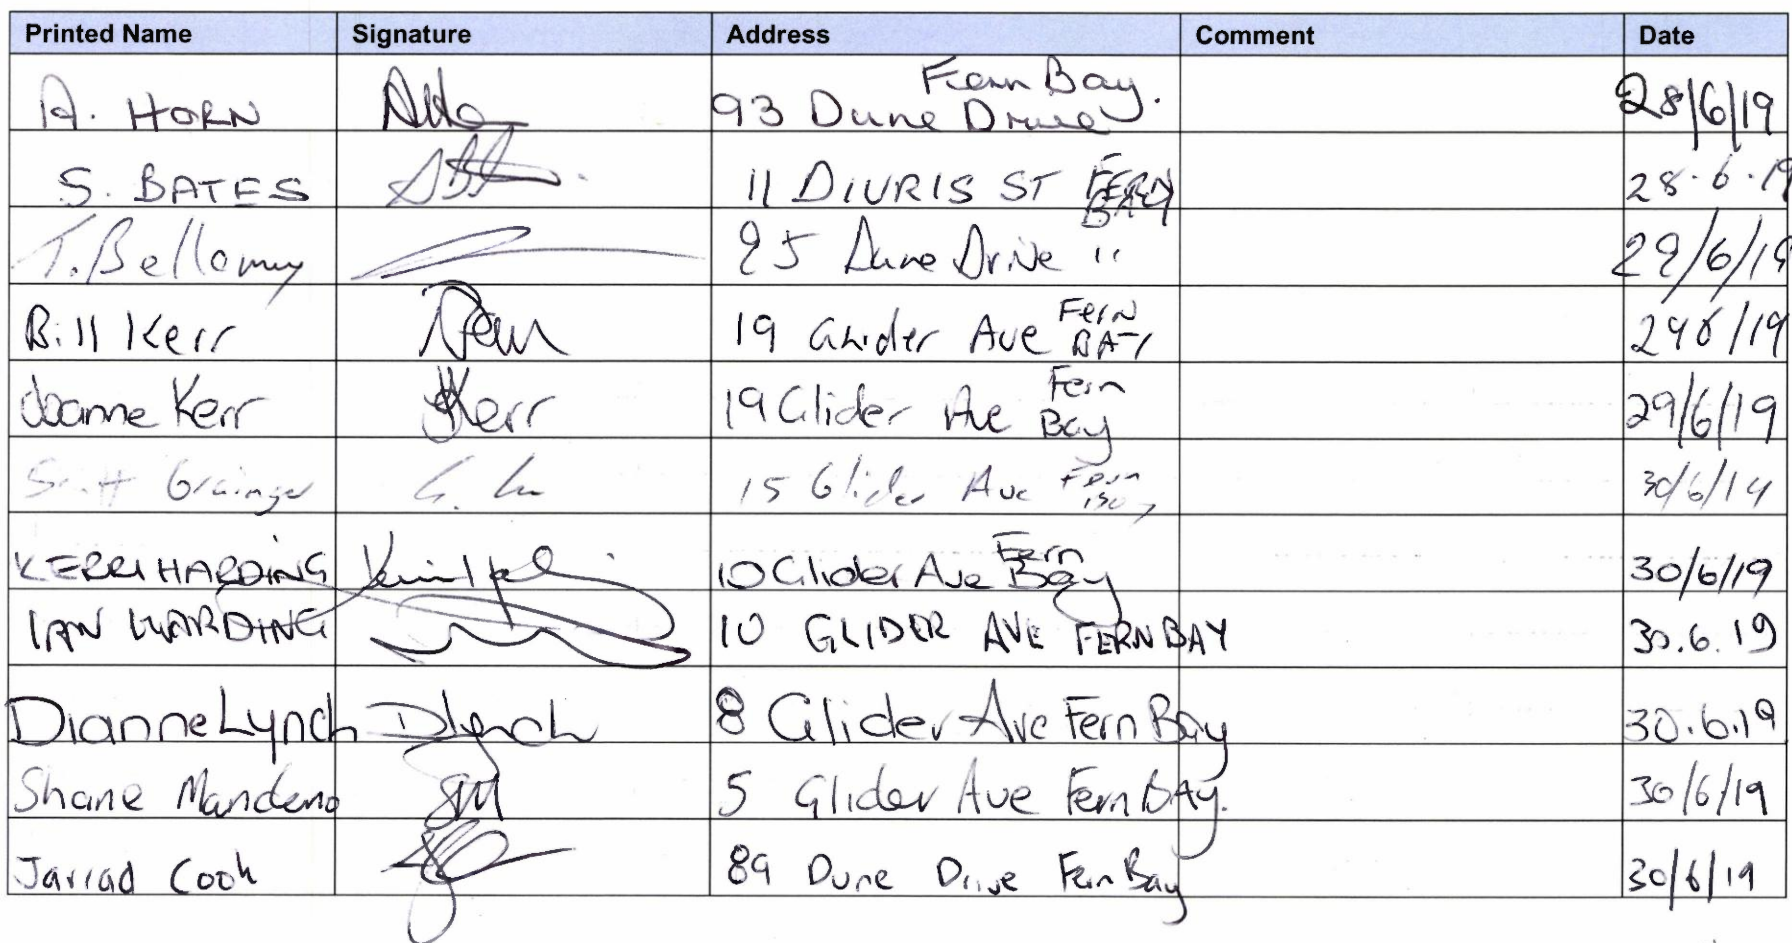 Printed Name Signature Address Comment Date
A. HORN 93 Dune Drive Fern Bay. 28/6/19
S. BATES 11 DIURIS ST FERN BAY 28.6.19
T. Bellamy 95 Dune Drive " 29/6/19
Bill Kerr 19 Glider Ave Fern BAY 29 6/19
Joanne Kerr JKerr 19 Glider Ave Fern Bay 29/6/19
Scott Grainger 15 Glider Ave Fern Bay 30/6/19
KERRI HARDING 10 Glider Ave Fern Bay 30/6/19
IAN HARDING 10 GLIDER AVE FERN BAY 30.6.19
Dianne Lynch DLynch 8 Glider Ave Fern Bay 30.6.19
Shane Mandeno SM 5 Glider Ave Fern BAY. 30/6/19
Jarrad Cook 89 Dune Drive Fern Bay 30/6/19